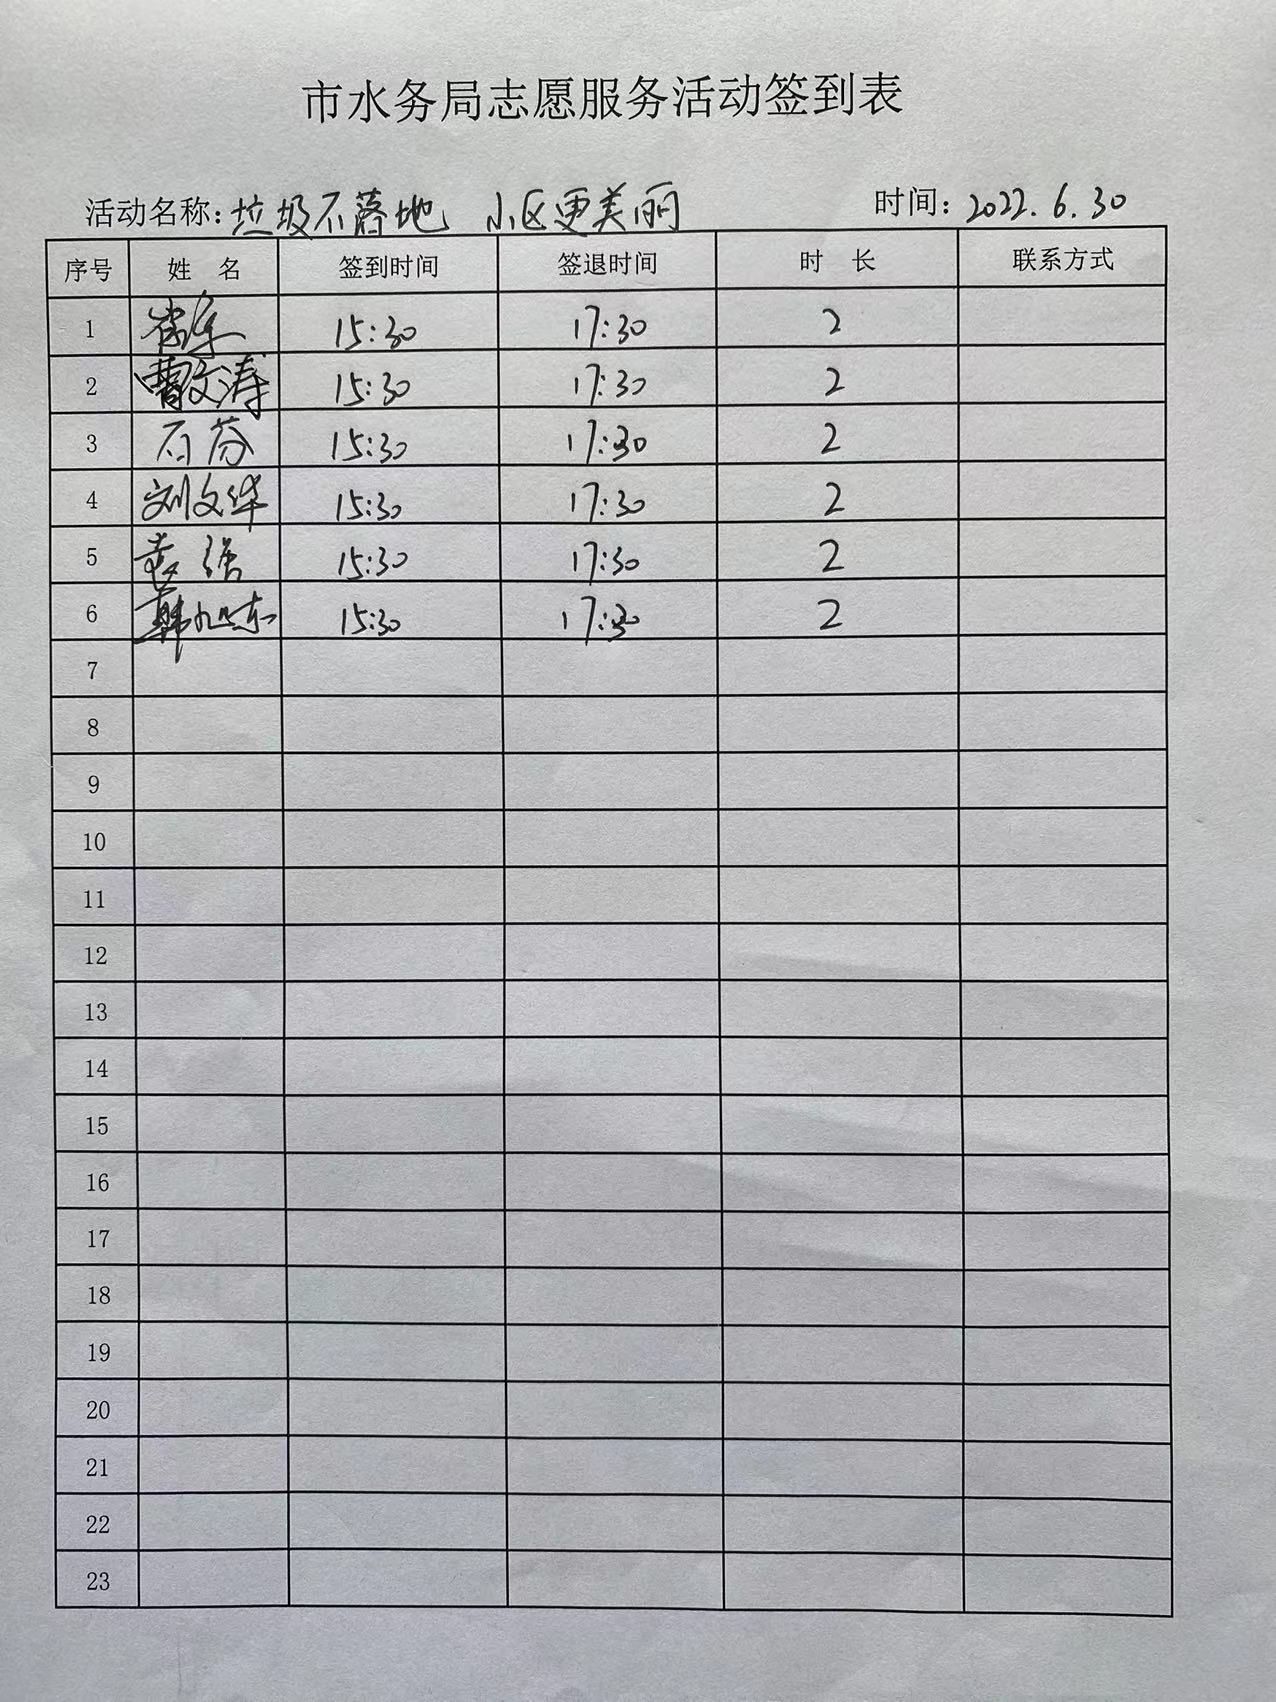 市水务局志愿服务活动签到表
活动名称：垃圾不落地 小区更美丽 时间：2022.6.30
序号 姓 名 签到时间 签退时间 时 长 联系方式
1 15:30 17:30 2
2 曹文涛 15:30 17:30 2
3 石芬 15:30 17:30 2
4 刘文华 15:30 17:30 2
5 袁强 15:30 17:30 2
6 韩旭东 15:30 17:30 2
7
8
9
10
11
12
13
14
15
16
17
18
19
20
21
22
23